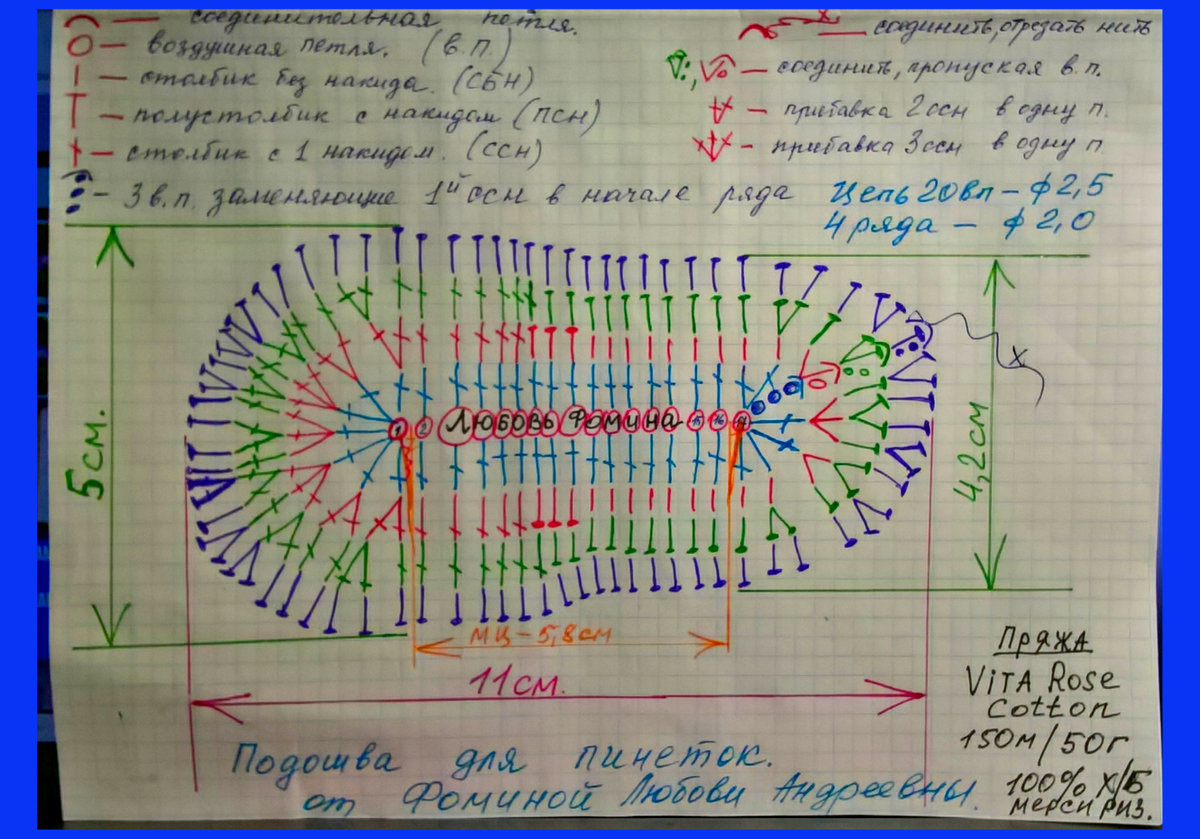 — соединительная петля.
— соединить, отрезать нить
— воздушная петля. (в.п.)
— соединить, пропуская в.п.
— столбик без накида. (СБН)
— полустолбик с накидом (ПСН)
— прибавка 2 ссн в одну п.
— столбик с 1 накидом. (ССН)
— прибавка 3 ссн в одну п
– 3 в.п. заменяющие 1й ссн в начале ряда
Цепь 20вп – ф 2,5
4 ряда – ф 2,0
5см.
4,2см
1 2 Любовь Фомина 15 16 17
МЦ – 5,8см
11см.
Пряжа
ViTA Rose
Cotton
150м/50г
100% Х/Б
мерсириз.
Подошва для пинеток.
от Фоминой Любови Андреевны.